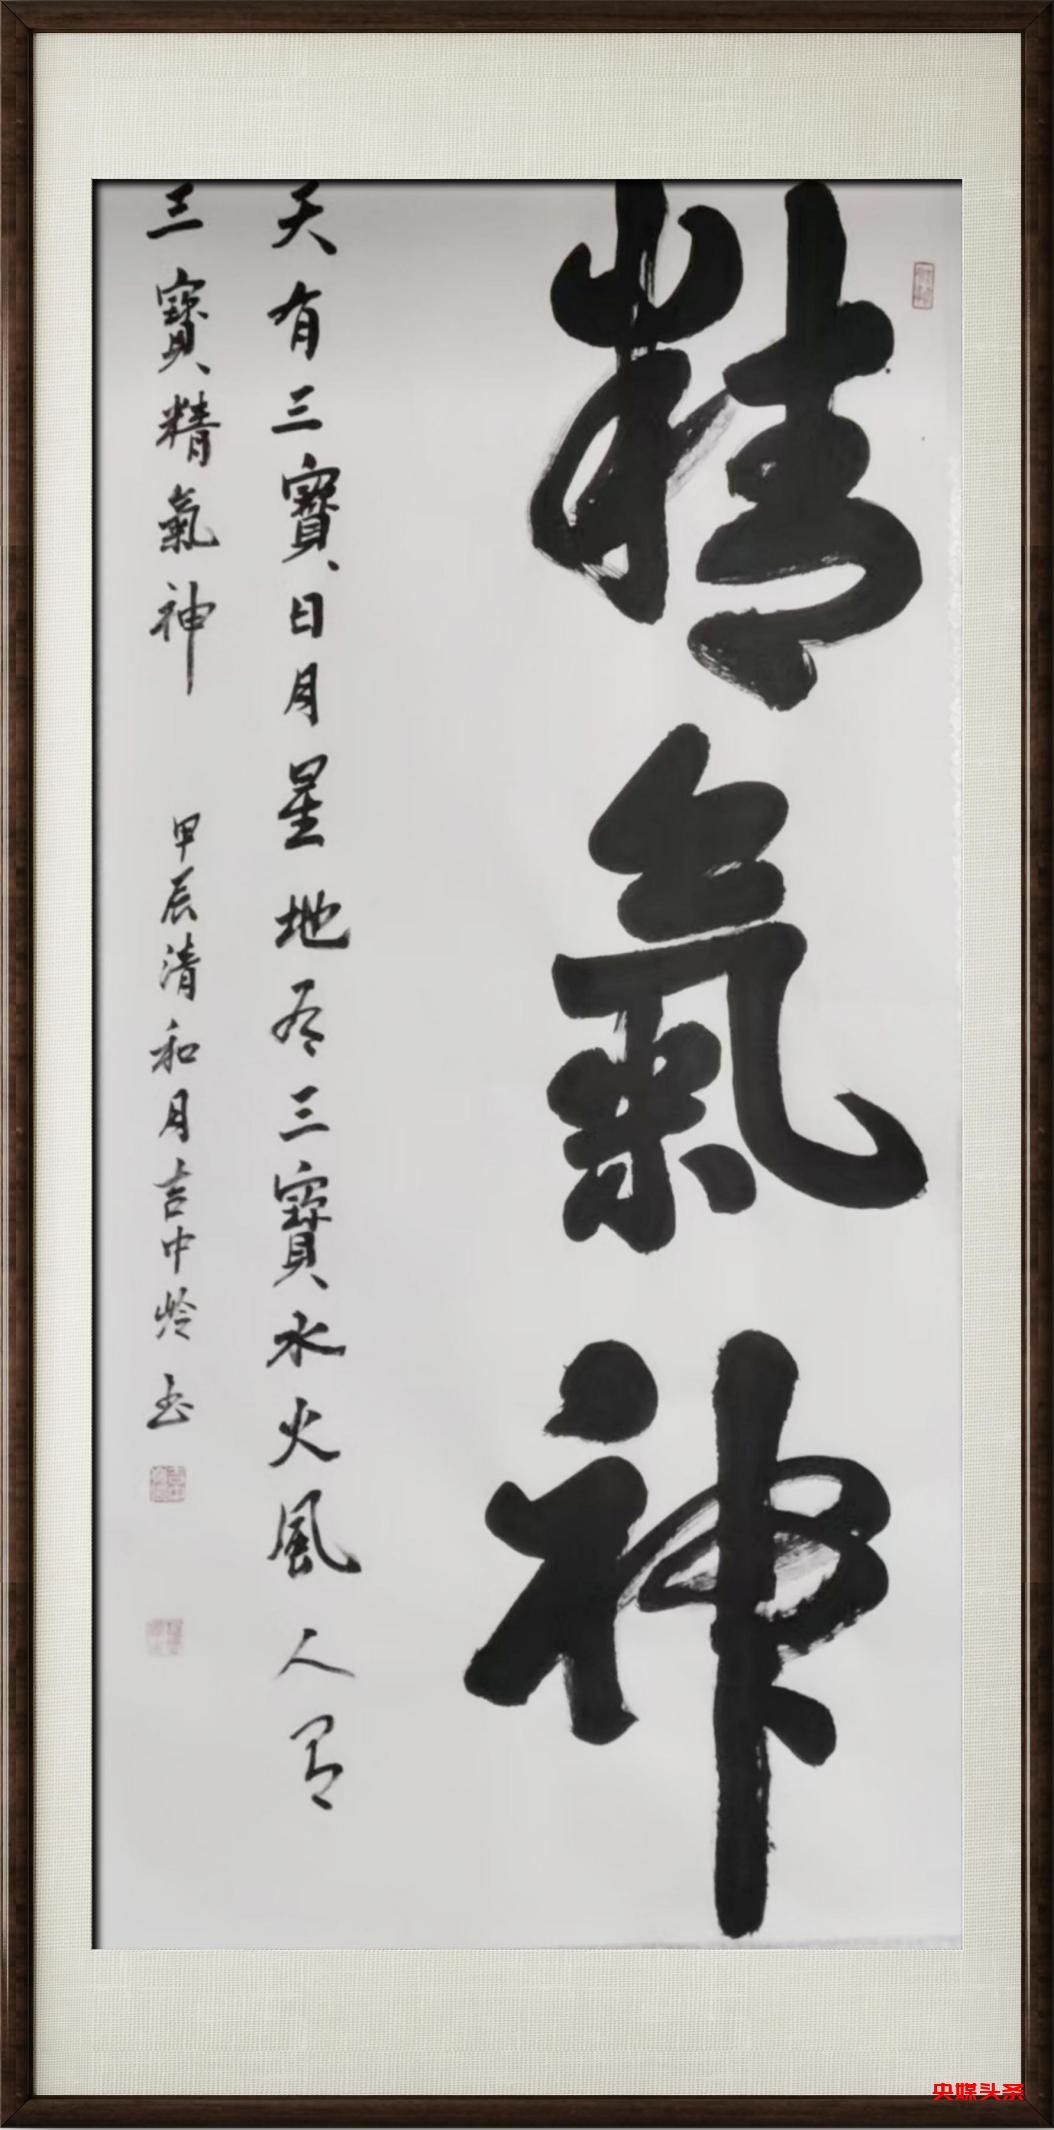 精氣神
天有三寶日月星地有三寶水火風人有
三寶精氣神
甲辰清和月吉中岭书
央媒头条